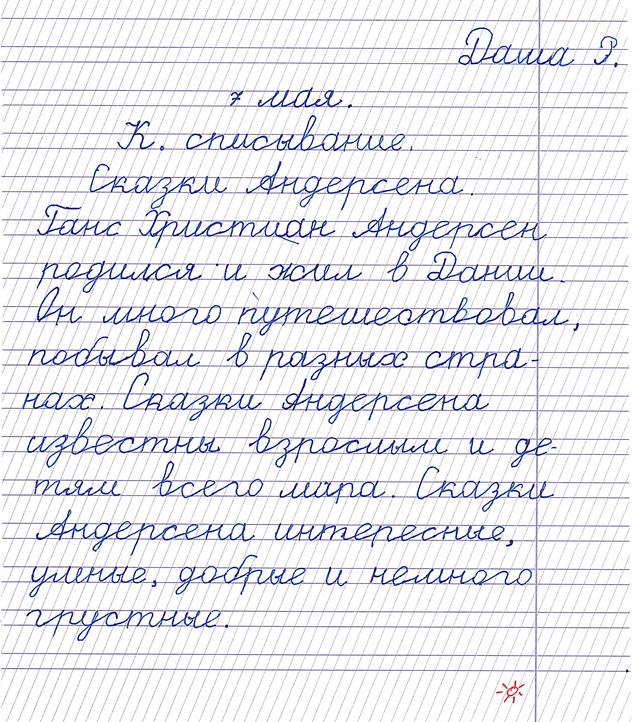 Даша Р.
7 мая.
К. списывание.
Сказки Андерсена.
Ганс Христиан Андерсен
родился и жил в Дании.
Он много путешествовал,
побывал в разных стра-
нах. Сказки Андерсена
известны взрослым и де-
тям всего мира. Сказки
Андерсена интересные,
умные, добрые и немного
грустные.